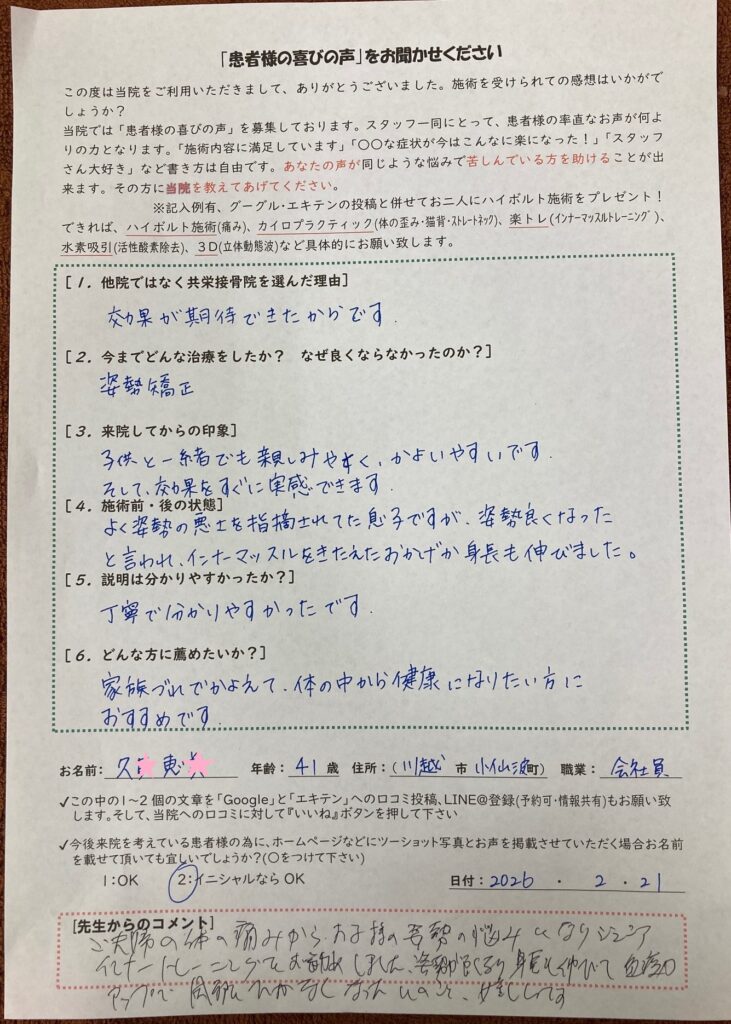 「患者様の喜びの声」をお聞かせください
この度は当院をご利用いただきまして、ありがとうございました。施術を受けられての感想はいかがで
しょうか?
当院では「患者様の喜びの声」を募集しております。スタッフ一同にとって、患者様の率直なお声が何よ
りの力となります。「施術内容に満足しています」「〇〇な症状が今はこんなに楽になった!」「スタッフ
さん大好き」など書き方は自由です。あなたの声が同じような悩みで苦しんでいる方を助けることが出
来ます。その方に当院を教えてあげてください。
※記入例有、グーグル・エキテンの投稿と併せてお二人にハイボルト施術をプレゼント!
できれば、ハイボルト施術(痛み)、カイロプラクティック(体の歪み・猫背・ストレートネック)、楽トレ(インナーマッスルトレーニング)、
水素吸引(活性酸素除去)、3D(立体動態波)など具体的にお願い致します。
[1. 他院ではなく共栄接骨院を選んだ理由]
効果が期待できたからです.
[2. 今までどんな治療をしたか? なぜ良くならなかったのか?]
姿勢矯正
[3. 来院してからの印象]
子供と一緒でも親しみやすく、かよいやすいです.
そして、効果をすぐに実感できます.
[4. 施術前・後の状態]
よく姿勢の悪さを指摘されてた息子ですが、姿勢良くなった
と言われ、インナーマッスルをきたえたおかげか身長も伸びました。
[5. 説明は分かりやすかったか?]
丁寧で分かりやすかったです.
[6. どんな方に薦めたいか?]
家族づれでかよえて、体の中から健康になりたい方に
おすすめです.
お名前: 久 恵 年齢: 41 歳 住所:(川越 市 小仙波町) 職業: 会社員
✓この中の1~2個の文章を「Google」と「エキテン」への口コミ投稿、LINE@登録(予約可・情報共有)もお願い致
します。そして、当院への口コミに対して『いいね』ボタンを押して下さい
✓今後来院を考えている患者様の為に、ホームページなどにツーショット写真とお声を掲載させていただく場合お名前
を載せて頂いても宜しいでしょうか?(〇をつけて下さい)
1:OK 2:イニシャルならOK 日付: 2026 ・ 2 ・ 21
[先生からのコメント]
ご夫婦の体の痛みから、お子様の姿勢の悩みになりジュニア
インナートレーニングをお勧めしました、姿勢が良くなり身長も伸びて
アップで